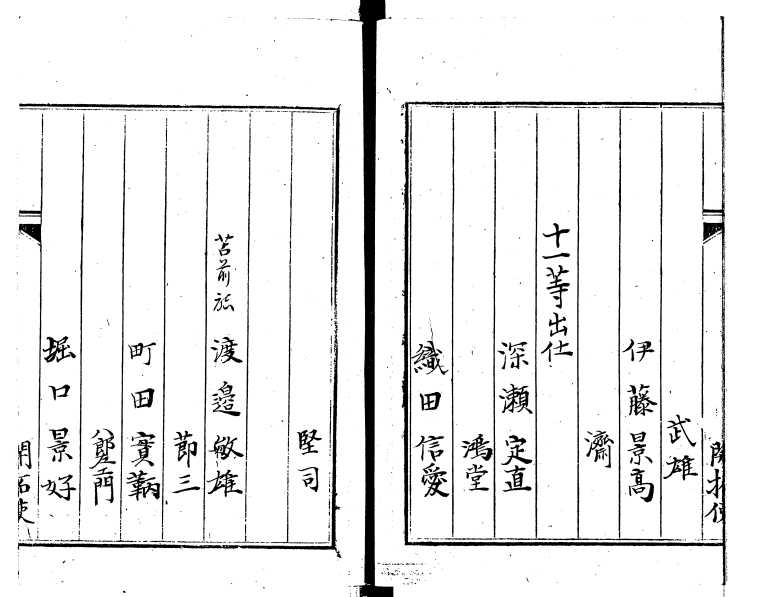 開拓使
武雄
伊藤景高
濟
十一等出仕
深瀬定直
鴻堂
織田信愛
堅司
苫前 渡邉敏雄
節三
町田實鞆
八郎左エ門
堀口景好
開拓使